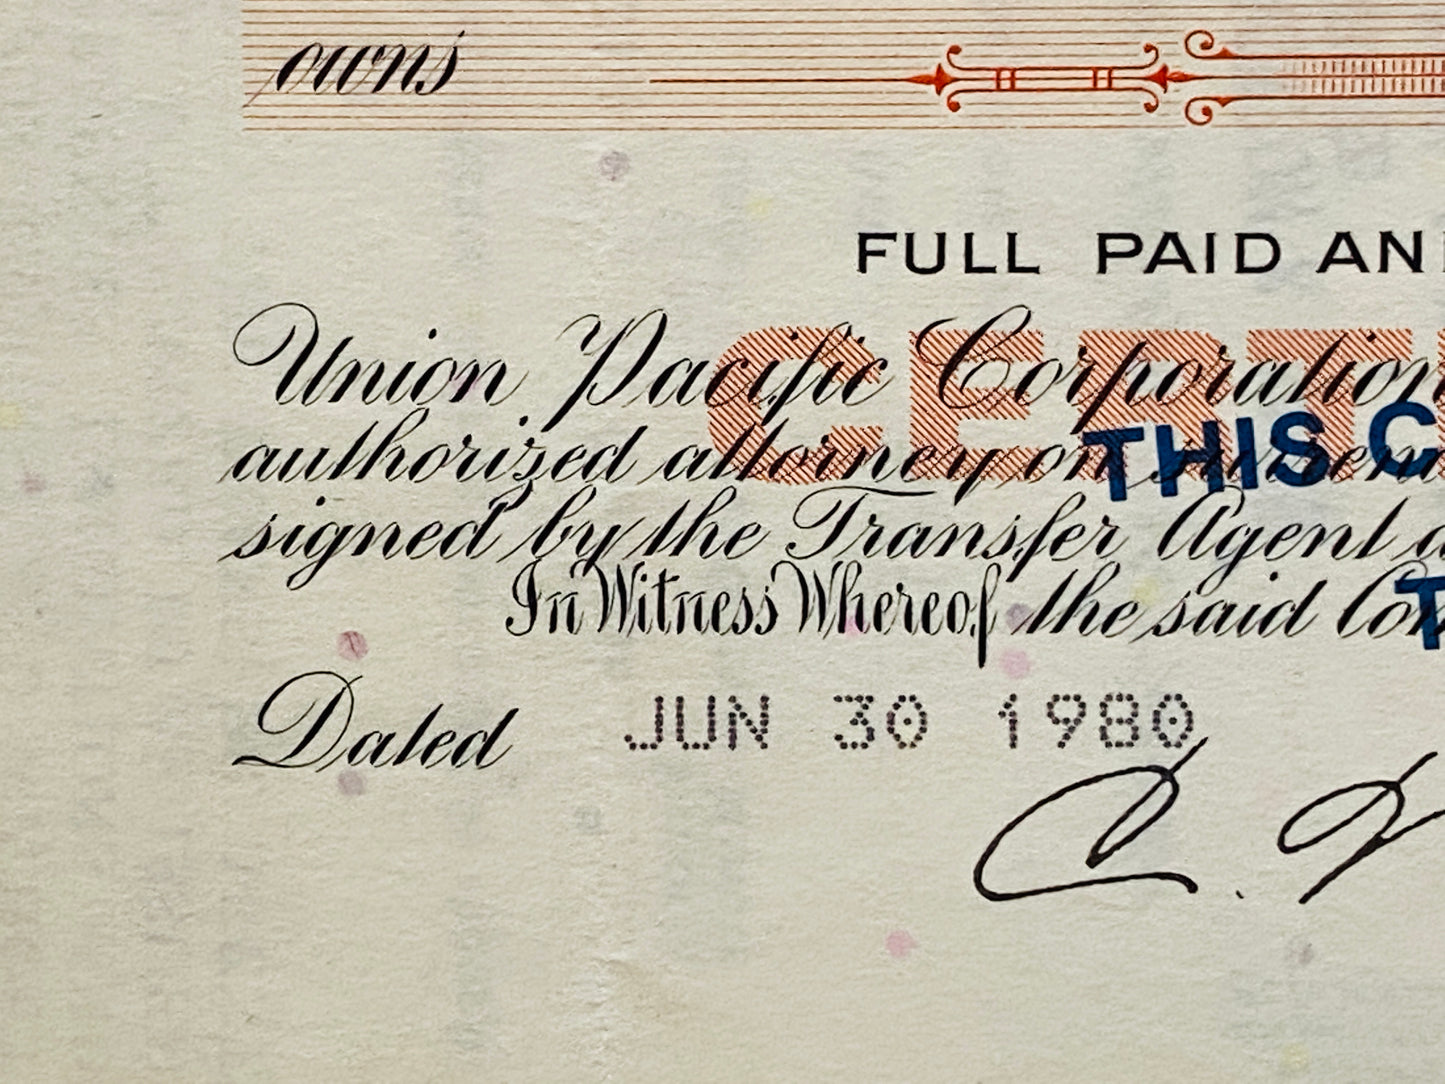 owns
FULL PAID AN
Union Pacific Corporation
CERT
authorized attorney on
THIS C
signed by the Transfer Agent
In Witness Whereof the said Com
T
Dated JUN 30 1980
C.